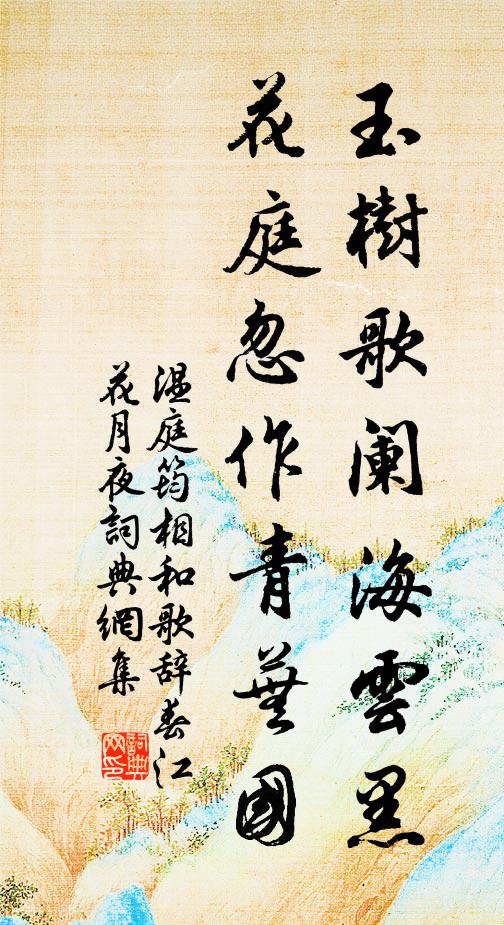 玉樹歌闌海雲黑
花庭忽作青蕪國
溫庭筠相和歌辞春江
花月夜詞典網集
詞典網印